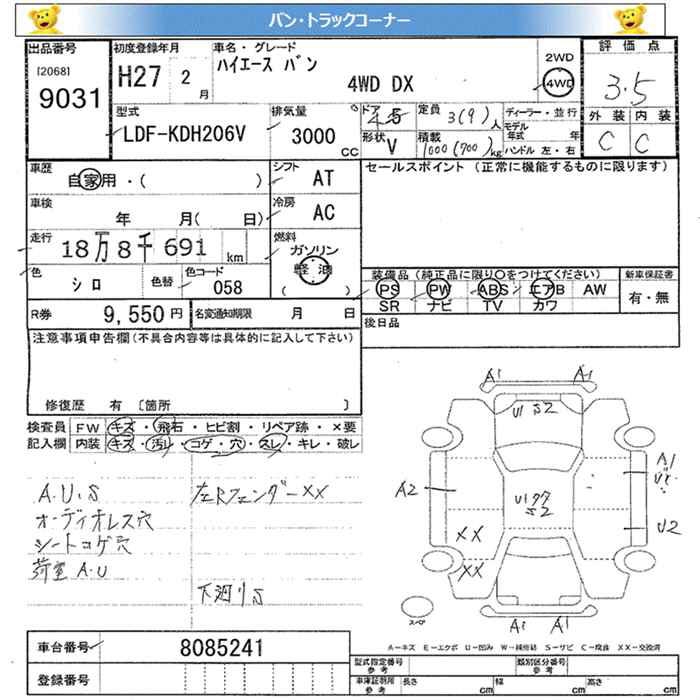 バン・トラックコーナー
出品番号
[2068]
9031
初度登録年月
H27 2 月
車名・グレード
ハイエース バン
4WD DX
2WD
4WD
評価点
3.5
外装 内装
C C
型式
LDF-KDH206V
排気量
3000 CC
ドア
4 5
形状
V
定員
3(9)人
積載
1000(700)kg
ディーラー・並行
モデル年式 年
ハンドル 左・右
車歴
自家用・( )
シフト
AT
車検
年 月( 日)
冷房
AC
走行
18万8千691 km
燃料
ガソリン
軽油
( )
色
シロ
色替
色コード
058
R券
9,550円
名変通知期限 月 日
セールスポイント (正常に機能するものに限ります)
装備品(純正品に限り○をつけてください)
PS PW ABS エアB AW
SR ナビ TV カワ
新車保証書
有・無
後日品
注意事項申告欄(不具合内容等は具体的に記入して下さい)
修復歴 有 〔箇所 〕
検査員 FW キズ・飛石・ヒビ割・リペア跡・×要
記入欄 内装 キズ・汚レ・コゲ・穴・スレ・キレ・破レ
A.U.S
オーディオレス穴
シートコゲ穴
荷室 A.U
左Rフェンダー××
下廻りS
A1 A1
U1 S2
A1
A2
U1
S2
U2
XX
XX
A1 A1
スペア
A-キズ E-エクボ U-凹み W-補修跡 S-サビ C-腐食 XX-交換済
車台番号
8085241
登録番号
型式指定番号
参考
類別区分番号
参考
車庫証明用
参考
長さ cm 幅 cm 高さ cm